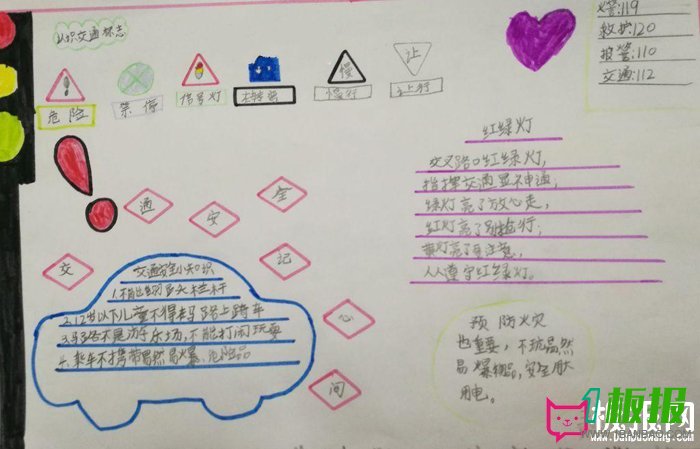 认识交通标志
火警:119
救护:120
报警:110
交通:112
危险
禁停
信号灯
慢
慢行
让
红绿灯
交叉路口红绿灯,
指挥交通显神通;
绿灯亮了放心走,
红灯亮了别抢行;
黄灯亮了要注意,
人人遵守红绿灯。
交
通
安
全
记
心
间
交通安全小知识
2.12岁以下儿童不得骑 路上骑车
不是游乐场,不能打闹玩耍
4.乘车不携带易燃易爆、危险品
预防火灾
也重要,不玩易燃
易爆物品,安全用火
用电。
1板报
板报网